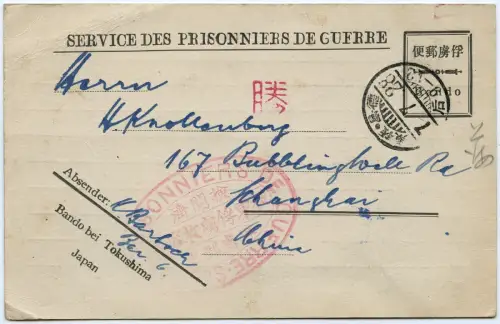 SERVICE DES PRISONNIERS DE GUERRE
便郵虜俘
Bando
Herrn
勝
H. Knollenberg
167 Bubbling Well Rd
Shanghai
China
Absender:
K. Barbock
Bar. 6.
Bando bei Tokushima
Japan